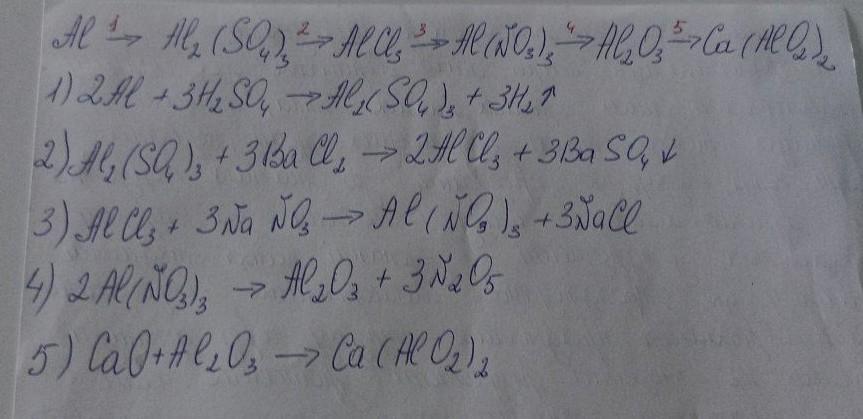 Al 1→ Al₂(SO₄)₃ 2→ AlCl₃ 3→ Al(NO₃)₃ 4→ Al₂O₃ 5→ Ca(AlO₂)₂
1) 2Al + 3H₂SO₄ → Al₂(SO₄)₃ + 3H₂↑
2) Al₂(SO₄)₃ + 3BaCl₂ → 2AlCl₃ + 3BaSO₄↓
3) AlCl₃ + 3NaNO₃ → Al(NO₃)₃ + 3NaCl
4) 2Al(NO₃)₃ → Al₂O₃ + 3N₂O₅
5) CaO + Al₂O₃ → Ca(AlO₂)₂